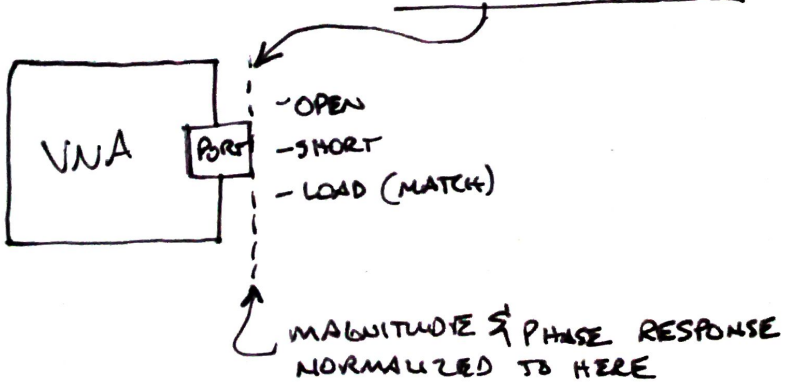 VNA
PORT
- OPEN
- SHORT
- LOAD (MATCH)
MAGNITUDE & PHASE RESPONSE
NORMALIZED TO HERE